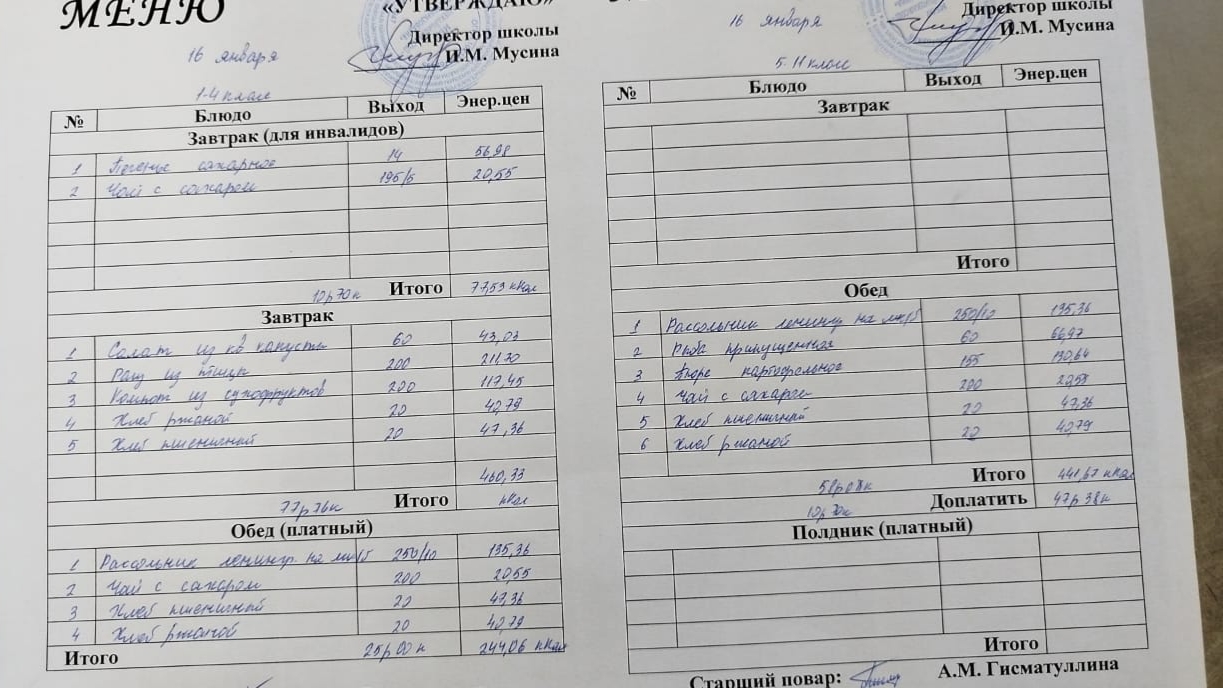 МЕНЮ
«УТВЕРЖДАЮ»
Директор школы
И.М. Мусина
16 января
1-4 класс
№ Блюдо Выход Энер.цен
Завтрак (для инвалидов)
1 Печенье сахарное 14 56,98
2 Чай с сахаром 195/5 20,55
10р70к Итого 77,53 кКал
Завтрак
1 Салат из кв капусты 60 43,03
2 Рагу из птицы 200 211,70
3 Компот из сухофруктов 200 117,45
4 Хлеб ржаной 20 40,79
5 Хлеб пшеничный 20 47,36
460,33
77р 76к Итого кКал
Обед (платный)
1 Рассольник ленингр. на мк/б 250/10 135,36
2 Чай с сахаром 200 20,55
3 Хлеб пшеничный 20 47,36
4 Хлеб ржаной 20 40,79
Итого 25р 00 к 244,06 кКал
16 января
Директор школы
И.М. Мусина
5-11 класс
№ Блюдо Выход Энер.цен
Завтрак
Итого
Обед
1 Рассольник ленингр на мк/б 250/10 135,36
2 Рыба припущенная 60 66,97
3 Пюре картофельное 155 130,64
4 Чай с сахаром 200 20,55
5 Хлеб пшеничный 20 47,36
6 Хлеб ржаной 20 40,79
58р08к Итого 441,67 кКал
10р70к Доплатить 47р 38к
Полдник (платный)
Итого
Старший повар: А.М. Гисматуллина